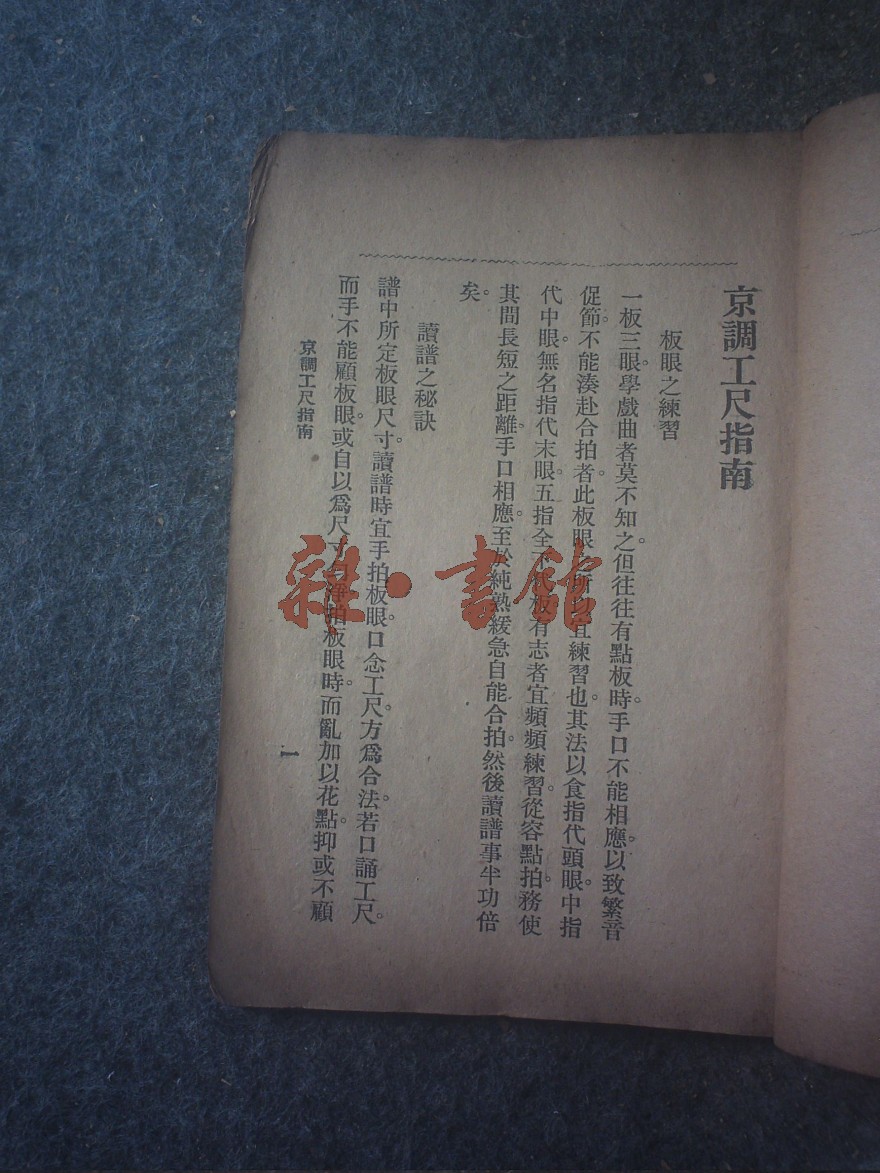 京調工尺指南
板眼之練習
一板三眼。學戲曲者莫不知之。但往往有點板時。手口不能相應。以致繁音
促節。不能湊赴合拍者。此板眼之所以宜練習也。其法以食指代頭眼。中指
代中眼。無名指代末眼。五指全下代板。有志者宜頻頻練習。從容點拍。務使
其間長短之距離。手口相應。至於純熟。緩急自能合拍。然後讀譜事半功倍
矣。
讀譜之秘訣
譜中所定板眼尺寸。讀譜時宜手拍板眼。口念工尺。方爲合法。若口誦工尺。
而手不能顧板眼。或自以爲尺寸 板眼時。而亂加以花點。抑或不顧
京調工尺指南
一
雜·書館